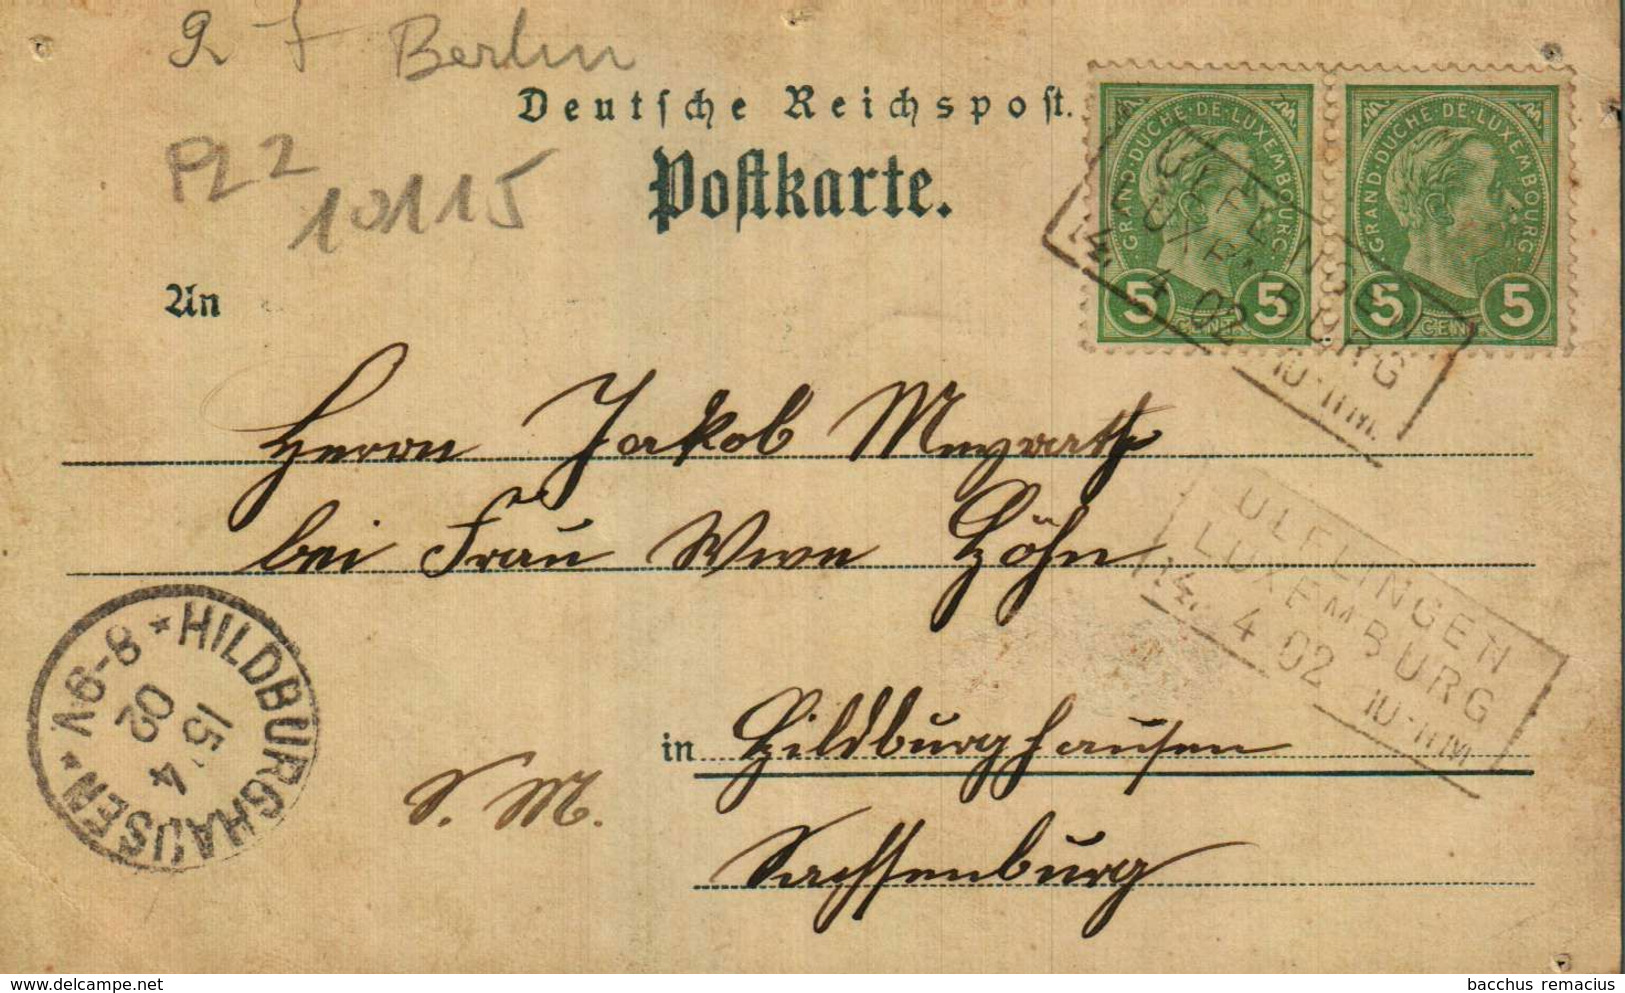 Berlin
PLZ
10115
Deutsche Reichspost.
Postkarte.
GRAND-DUCHÉ-DE-LUXEMBOURG
5 CENT. 5
GRAND-DUCHÉ DE LUXEMBOURG
5 CENT. 5
ULFLINGEN
LUXEMBURG
14. 4 02 10-11M
An
Herrn Jakob Meyrath
bei Frau Wwe Höhn
ULFLINGEN
LUXEMBURG
14. 4 02 10-11M
HILDBURGHAUSEN
15 4
02
6-8V
in Hildburghausen
S. M.
Sachsenburg
delcampe.net
bacchus remacius